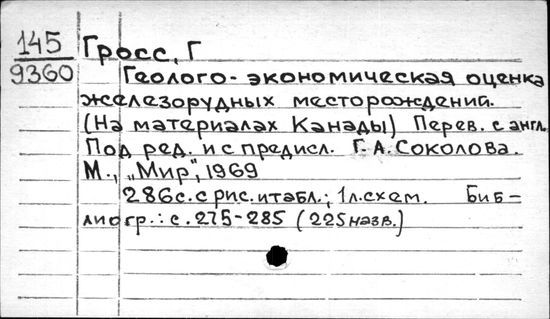 145
9360
Гросс, Г
Геолого-экономическая оценка
железорудных месторождений.
(На материалах Канады) Перев. с англ.
Под ред. и с предисл. Г.А. Соколова.
М., „Мир", 1969
286 с. с рис. и табл.; 1 л. схем. Биб-
лиогр.: с. 275-285 (225 назв.)